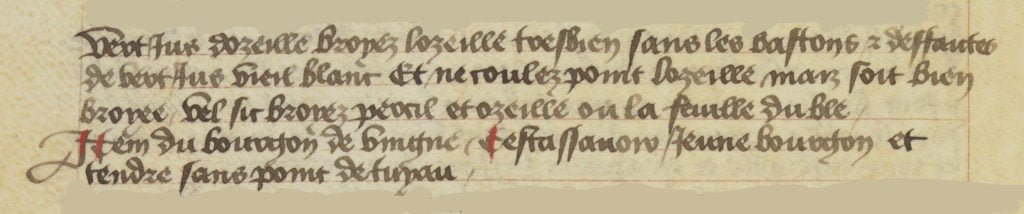 Vert Jus dozeille broyez lozeille tresbien sans les bastons & deffaites
de vert Jus vieil blanc Et ne coulez point lozeille maiz soit bien
broyee / vel sic broyez percil et ozeille ou la feuille du ble /
Item du bourgon de vingne / Cest assavoir / Jeune bourgon et
tendre sans point de tuyau /